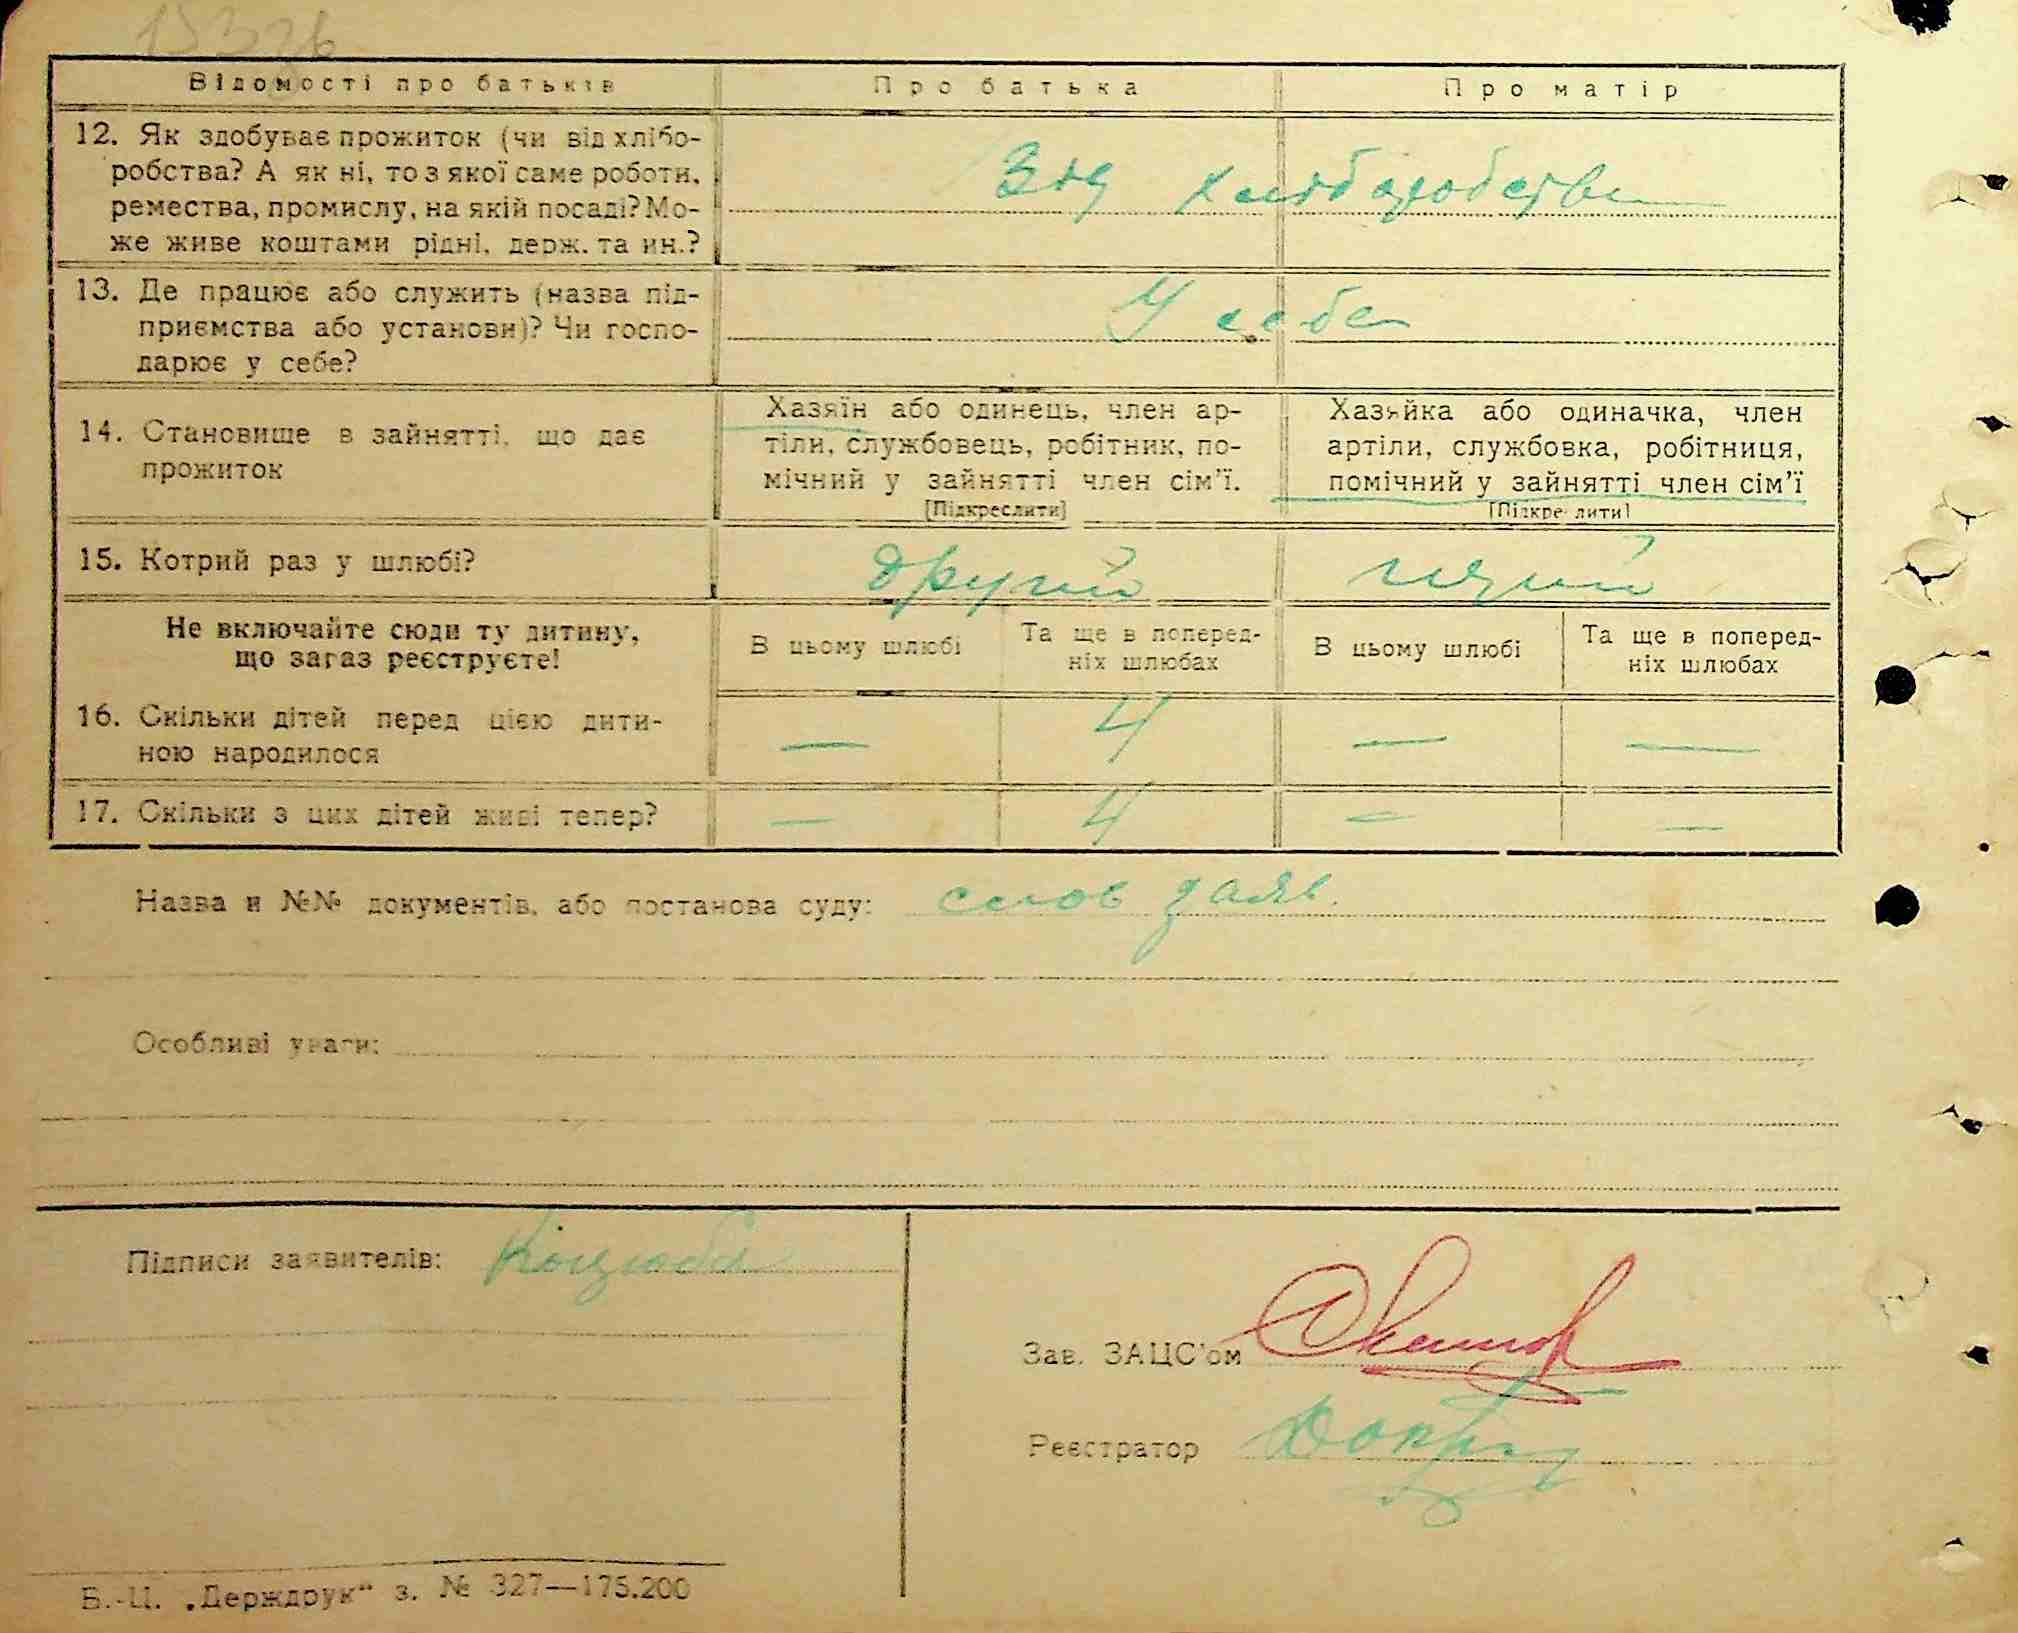 Відомості про батьків Про батька Про матір
12. Як здобуває прожиток (чи від хлібо-
робства? А як ні, то з якої саме роботи,
ремества, промислу, на якій посаді? Мо-
же живе коштами рідні, держ. та ин.?
Від хліборобства
13. Де працює або служить (назва під-
приємства або установи)? Чи госпо-
дарює у себе?
У себе
14. Становище в зайнятті, що дає
прожиток
Хазяїн або одинець, член ар-
тіли, службовець, робітник, по-
мічний у зайнятті член сім'ї.
[Підкреслити]
Хазяйка або одиначка, член
артіли, службовка, робітниця,
помічний у зайнятті член сім'ї
[Підкреслити]
15. Котрий раз у шлюбі? другий
Не включайте сюди ту дитину,
що зараз реєструєте!
В цьому шлюбі
Та ще в поперед-
ніх шлюбах
В цьому шлюбі
Та ще в поперед-
ніх шлюбах
16. Скільки дітей перед цією дити-
ною народилося
— 4 — —
17. Скільки з цих дітей живі тепер? — 4 — —
Назва й №№ документів, або постанова суду: слов заяв.
Особливі уваги:
Підписи заявителів: Коцюба
Зав. ЗАЦС'ом
Реєстратор
Б.-Ц. „Держдрук“ з. № 327—175.200